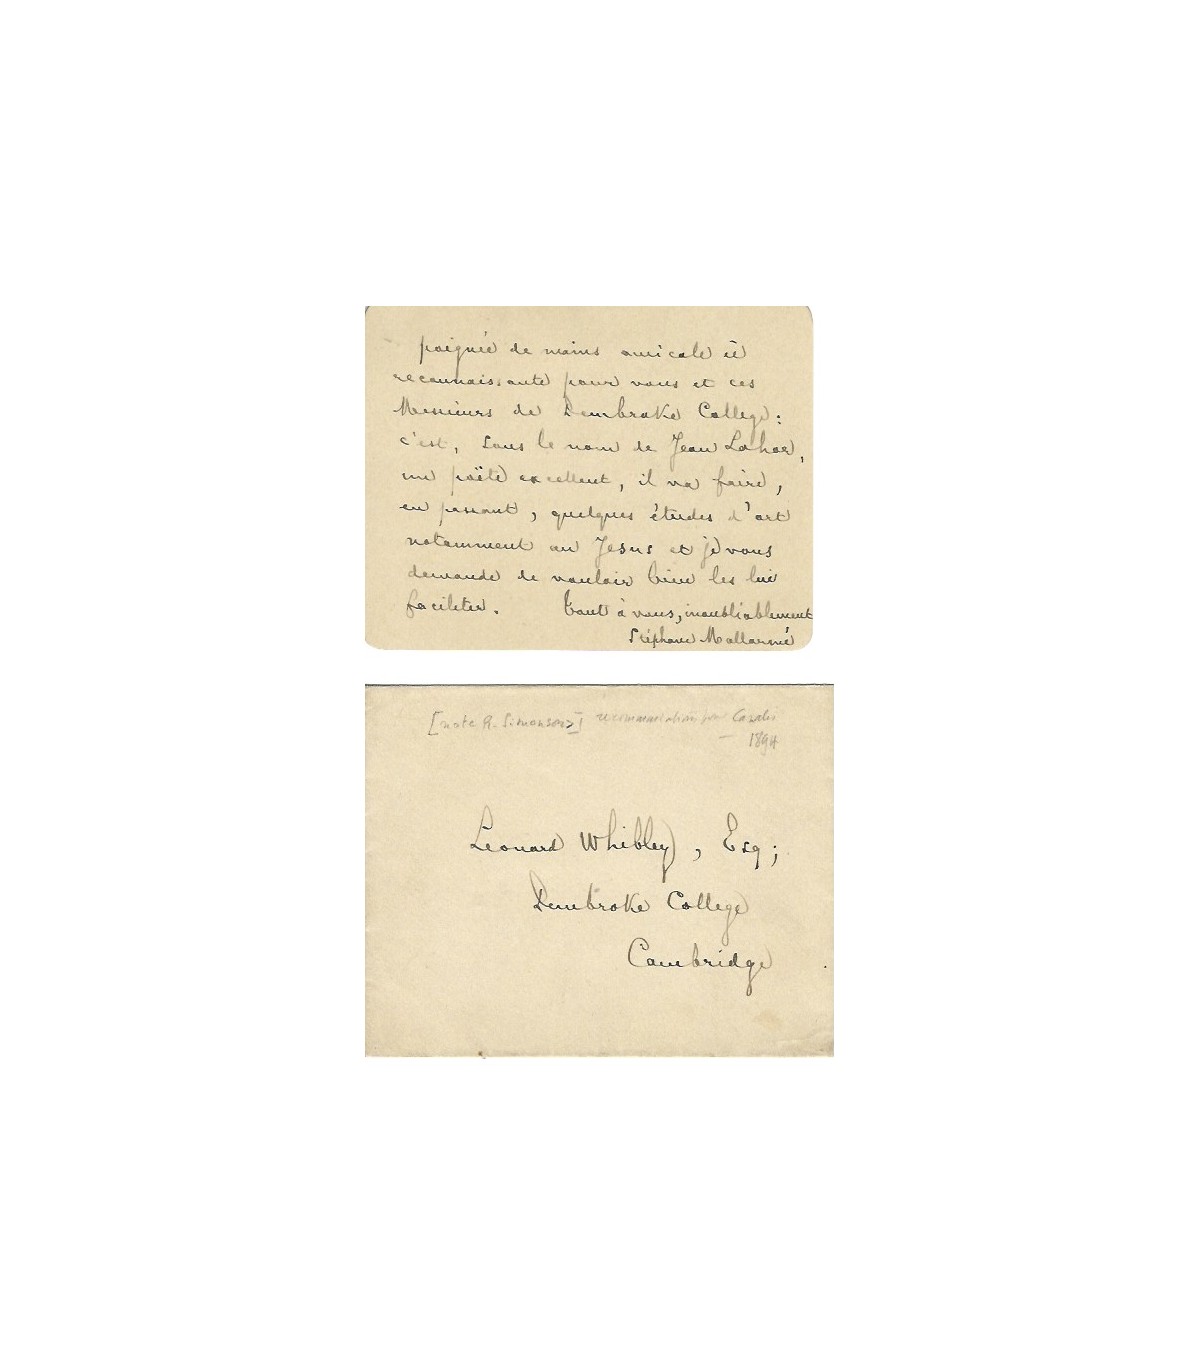 poignée de mains amicale et
reconnaissante pour vous et ces
Messieurs de Pembroke College:
c'est, sous le nom de Jean Lahor,
un poëte excellent, il va faire,
en passant, quelques études d'art
notamment au Jesus et je vous
demande de vouloir bien les lui
faciliter. Tout à vous, inoubliablement
Stéphane Mallarmé
[note R. Simonson] recommandation pour Cazalis
1894
Leonard Whibley, Esq;
Pembroke College
Cambridge